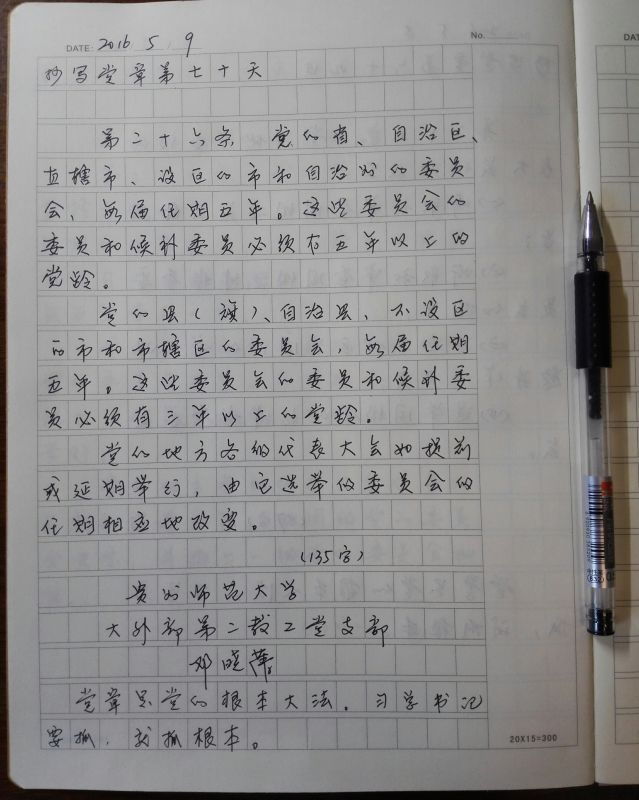 DATE: 2016 5. 9
No.
抄写党章第七十天
第二十六条 党的省、自治区、
直辖市、设区的市和自治州的委员
会，每届任期五年。这些委员会的
委员和候补委员必须有五年以上的
党龄。
党的县（旗）、自治县、不设区
的市和市辖区的委员会，每届任期
五年。这些委员会的委员和候补委
员必须有三年以上的党龄。
党的地方各级代表大会如提前
或延期举行，由它选举的委员会的
任期相应地改变。
(135字)
贵州师范大学
大外部第二教工党支部
邓晓
党章是党的根本大法。习学书记
要抓，就抓根本。
20X15=300
DAT